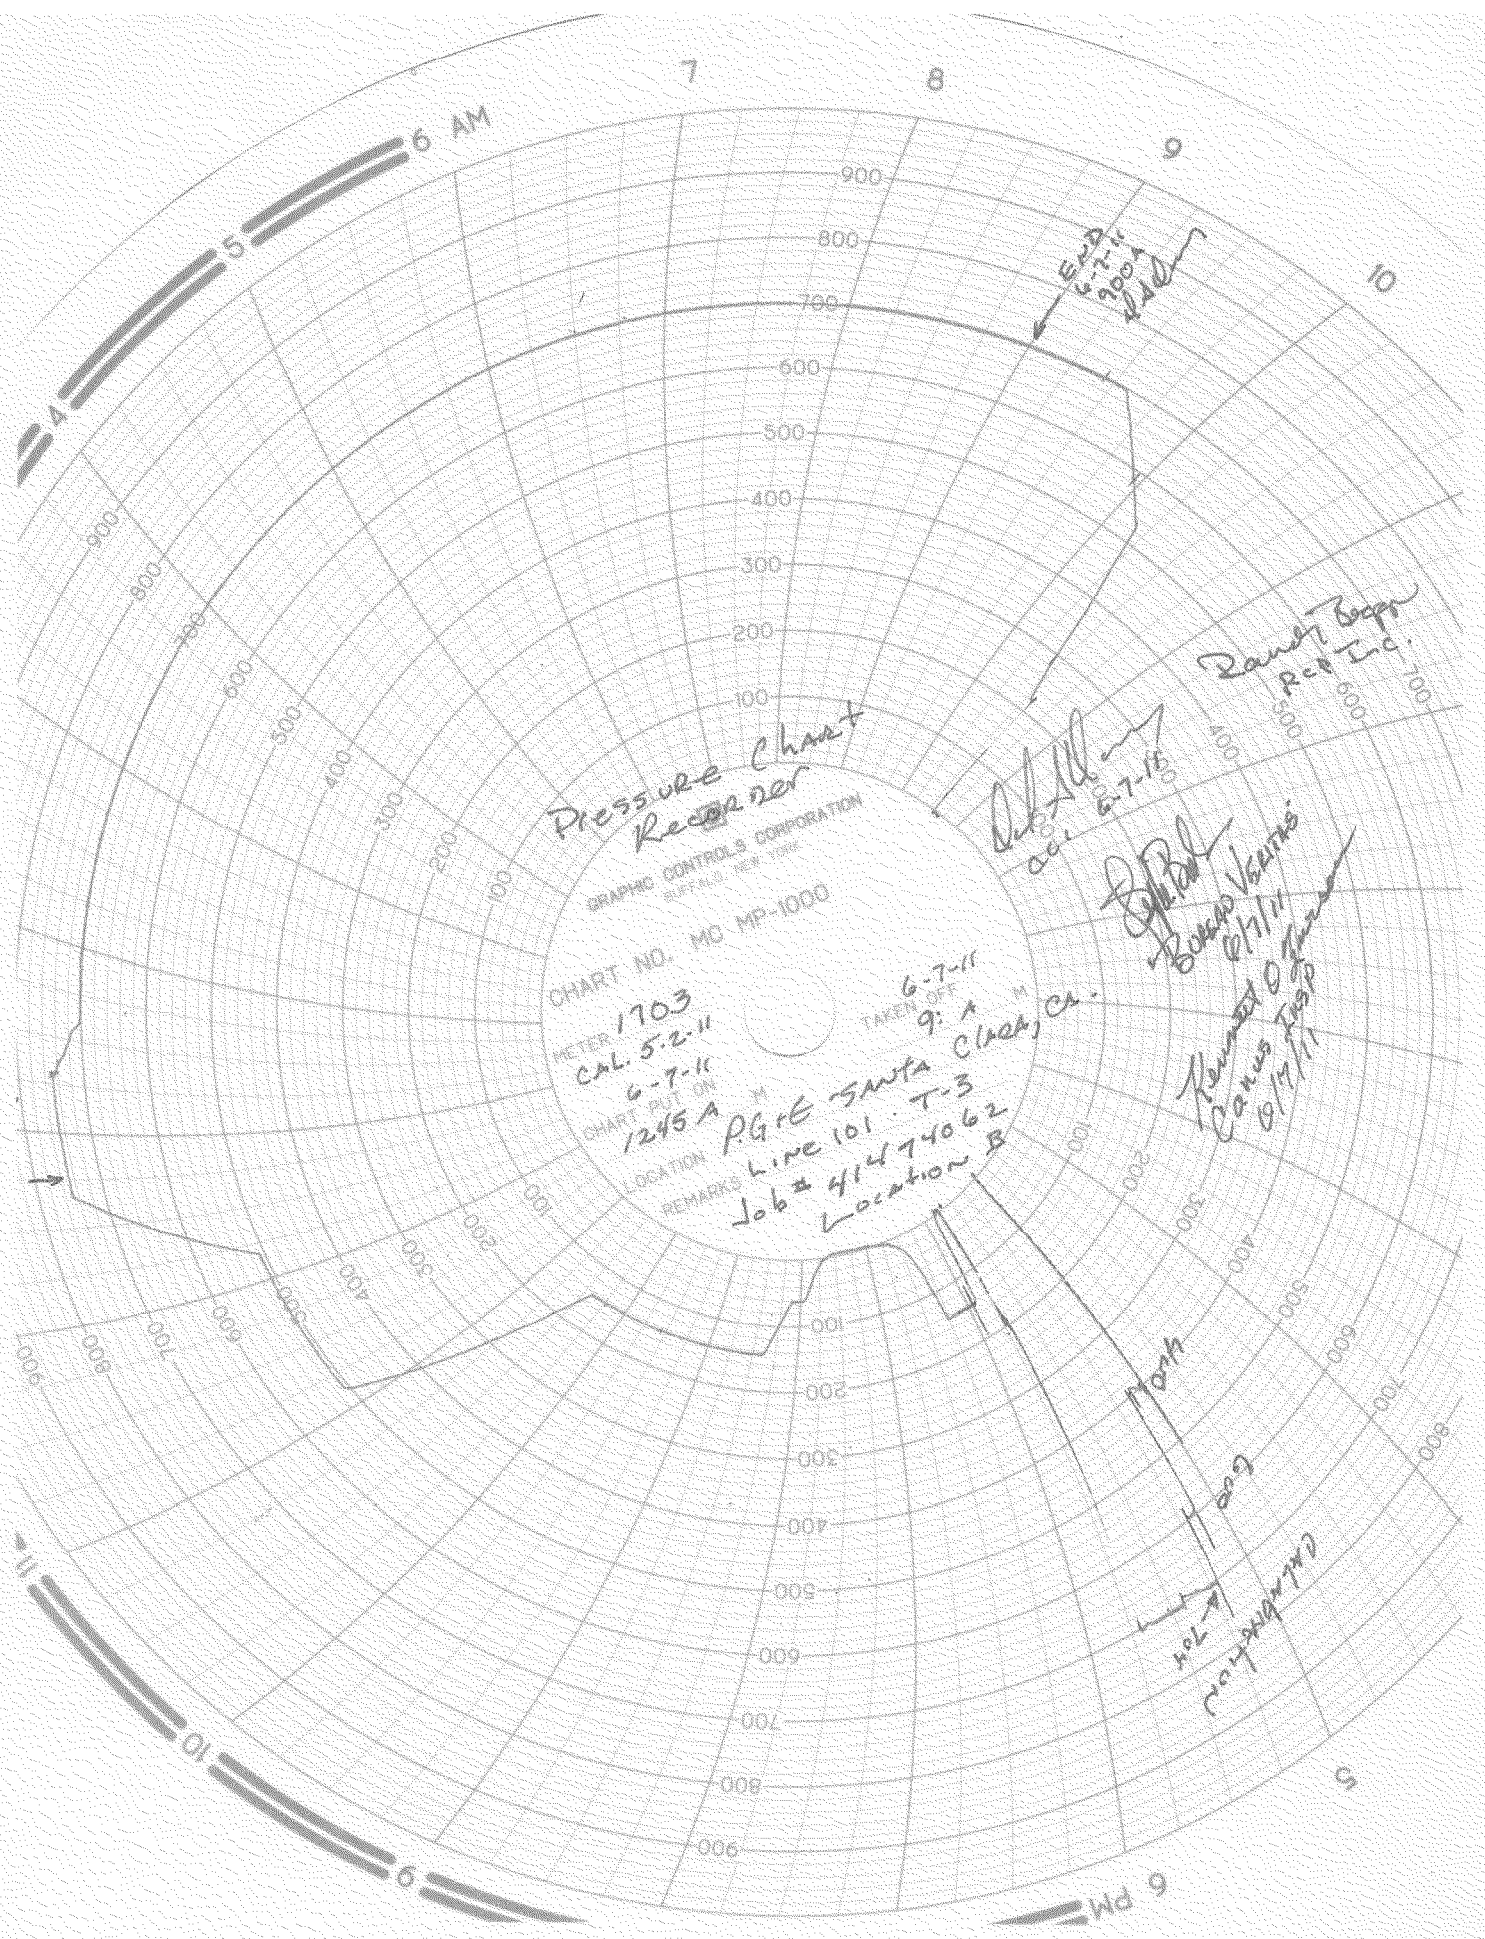 7
8
9
10
6 AM
5
4
900
800
700
600
500
400
300
200
100
END
6-7-11
900A
Randy
RCP Inc.
6-7-11
BUREAU VERITAS
6/7/11
Kenneth O
Canus Insp
6/7/11
Pressure Chart
Recorder
GRAPHIC CONTROLS CORPORATION
BUFFALO, NEW YORK
CHART NO. MC MP-1000
METER 1703
CAL. 5-2-11
6-7-11
CHART PUT ON M
1245 A
6-7-11
TAKEN OFF M
9: A
LOCATION PG+E SANTA CLARA, CA.
REMARKS LINE 101. T-3
Job # 41474062
Location B
900
800
700
600
500
400
300
200
100
700
600
500
400
100
200
300
400
500
600
700
800
900
800
700
600
500
400
300
200
100
100
200
300
400
500
600
700
800
900
11
10
9
6 PM
5